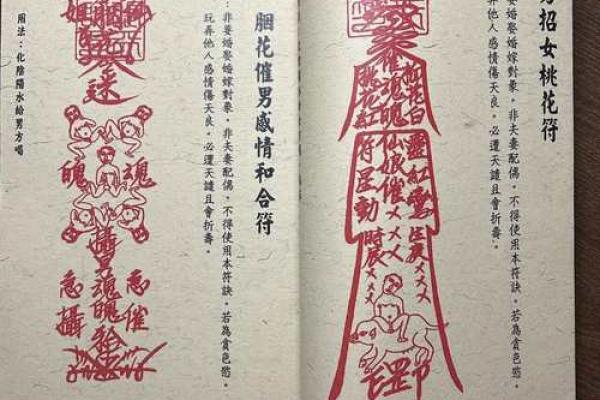 招女桃花符
婚娶婚嫁對象，非夫妻配偶，不得使用本符訣。若為貪色慾，
人感情傷天良，必遭天譴且會折壽。
催魂魄
桃花紅
靈紅鸞生庚メメメ
仙娘催メメメ
符罡動時辰メメ
罡
胭花催男感情和合符
：非要婚娶婚嫁對象，非夫妻配偶，不得使用本符訣。若為貪色慾，
玩弄他人感情傷天良，必遭天譴且會折壽。
迷
魂
魄
攝男魂魄
急催
急攝
用法：化陰陽水給男方喝